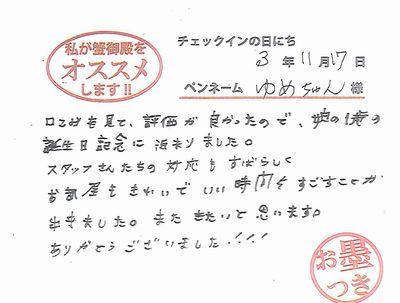 私が蟹御殿を
オススメ
します!!
チェックインの日にち
3年11月17日
ペンネーム ゆめちゃん 様
口こみを見て、評価が良かったので、の
誕生日記念に泊まりました。
スタッフさんたちの対応もすばらしく
お部屋もきれいでいい時間をすごすことが
出来ました。またきたいと思います。
ありがとうございました!!!
お墨
つき